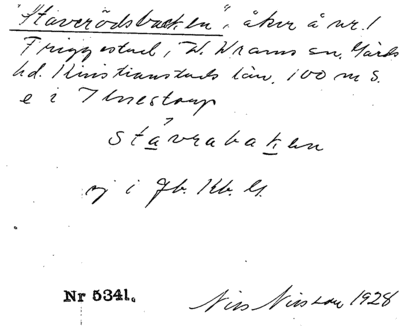 "Stäverödsbacken", åker å nr. 1
Triggestad, V. Vrams sn, Gärds
hd. Kristianstads län, 100 m S.
e i Ynestorp
stävrabaken
ej i Jb. Kb. G.
Nr 5341.
Nils Nilsson 1928